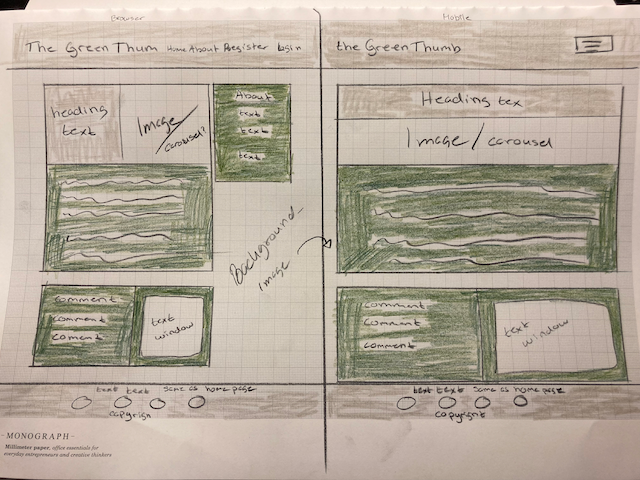 Browser
The Green Thum Home About Register login
heading
text
Image/
carousel?
About
text
text
text
Background
Image
comment
comment
coment
text
window
text text same as home page
copyrign
Mobile
the Green Thumb
Heading tex
Image/carousel
comment
comment
comment
text
window
text text same as home page
copyright
-MONOGRAPH-
Millimeter paper, office essentials for
everyday entrepreneurs and creative thinkers